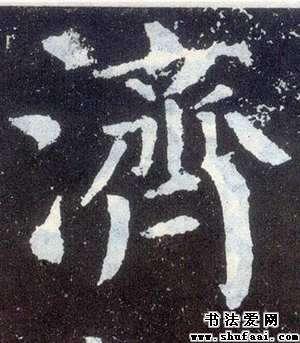 濟
书法爱网
www.shufaai.com